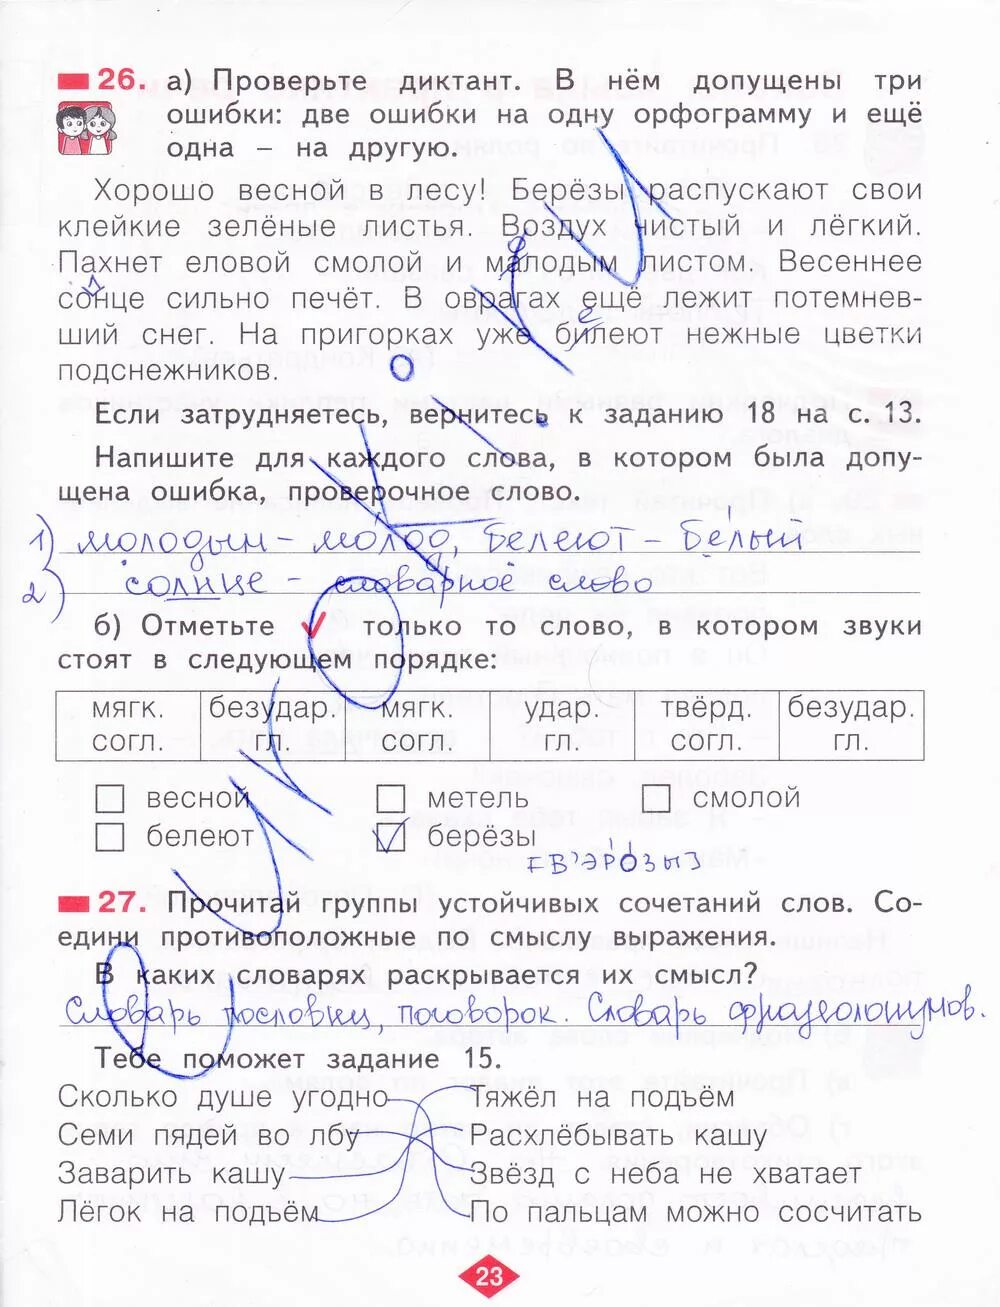 26. а) Проверьте диктант. В нём допущены три
ошибки: две ошибки на одну орфограмму и ещё
одна – на другую.
Хорошо весной в лесу! Берёзы распускают свои
клейкие зелёные листья. Воздух чистый и лёгкий.
Пахнет еловой смолой и малодым листом. Весеннее
сонце сильно печёт. В оврагах ещё лежит потемнев-
ший снег. На пригорках уже билеют нежные цветки
подснежников.
Если затрудняетесь, вернитесь к заданию 18 на с. 13.
Напишите для каждого слова, в котором была допу-
щена ошибка, проверочное слово.
1) молодым – мо́лод, белеют – бе́лый
2) солнце – словарное слово
б) Отметьте ✓ только то слово, в котором звуки
стоят в следующем порядке:
мягк. безудар. мягк. удар. твёрд. безудар.
согл. гл. согл. гл. согл. гл.
весной метель смолой
белеют ✓ берёзы
[б'эр'о́зы]
27. Прочитай группы устойчивых сочетаний слов. Со-
едини противоположные по смыслу выражения.
В каких словарях раскрывается их смысл?
Словарь пословиц, поговорок. Словарь фразеологизмов.
Тебе поможет задание 15.
Сколько душе угодно Тяжёл на подъём
Семи пядей во лбу Расхлёбывать кашу
Заварить кашу Звёзд с неба не хватает
Лёгок на подъём По пальцам можно сосчитать
23